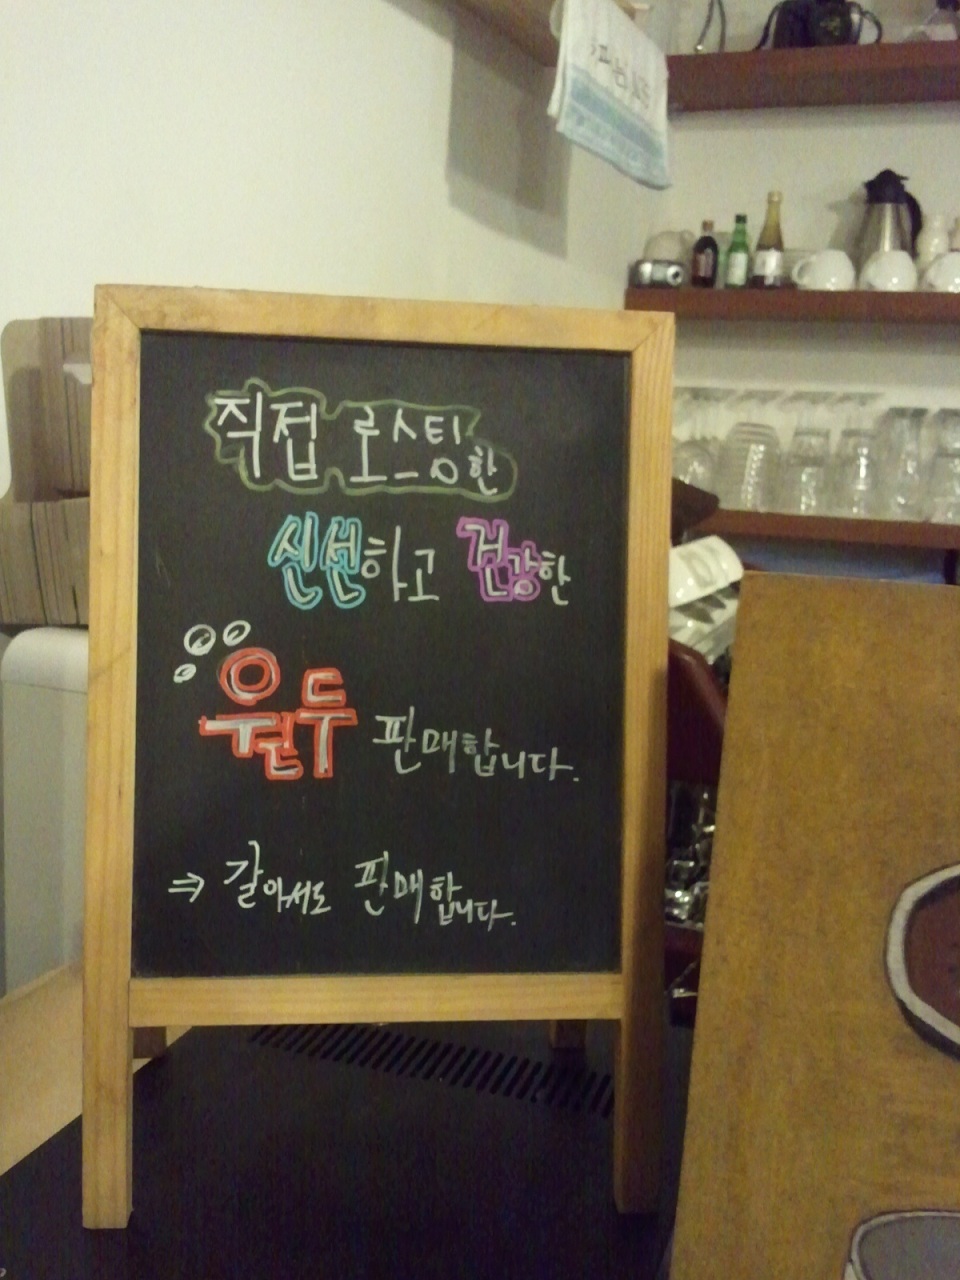 직접 로스팅한
신선하고 건강한
원두 판매합니다.
⇒ 갈아서도 판매합니다.